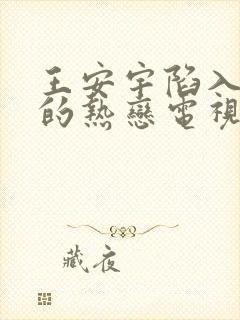 王安宇陷入
的熱戀電視
藏夜